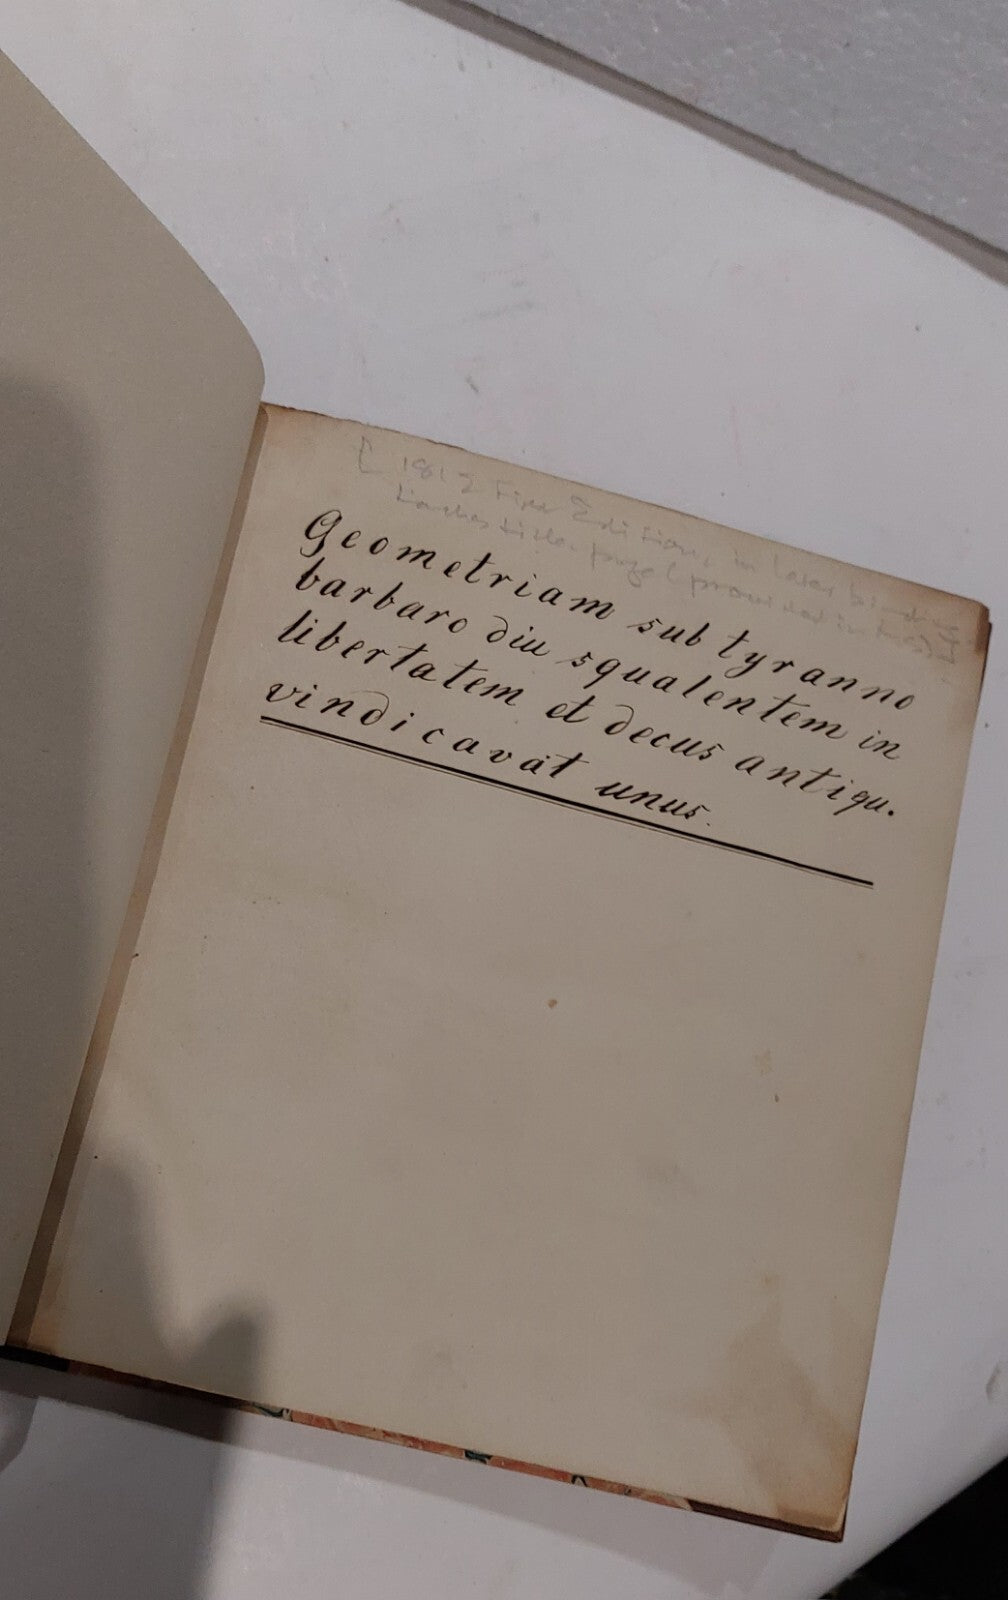 [1812 First Edition, in later binding
lacks title page (provided in
Geometriam sub tyranno
barbaro diu squalentem in
libertatem et decus antiqu.
vindicavat unus.